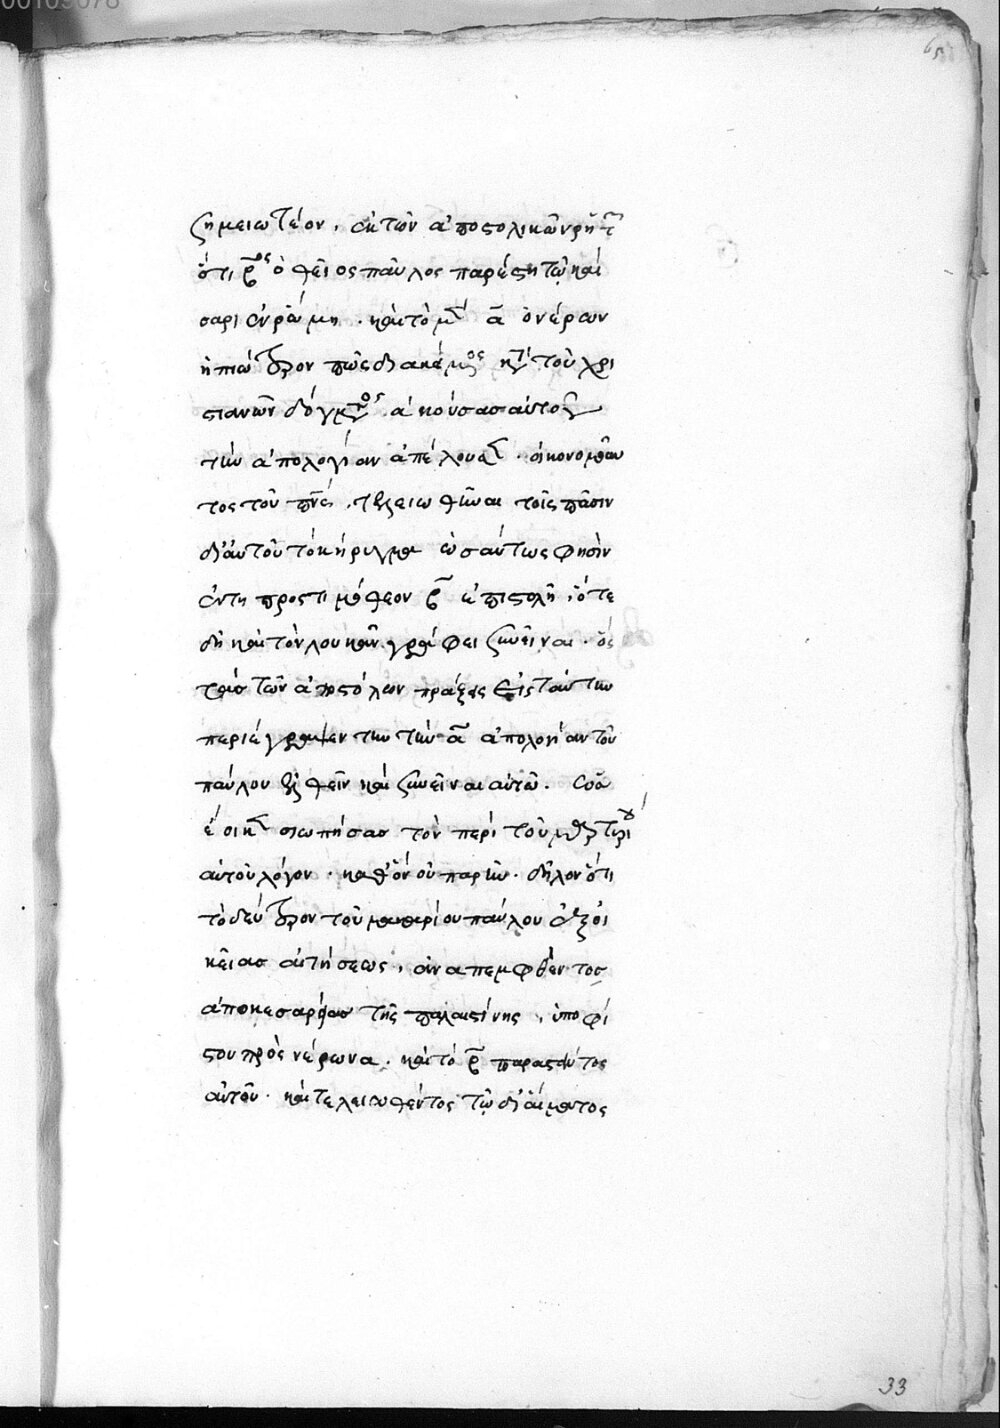 σημειωτέον, ἐκ τῶν ἀποστολικῶν ῥητ
ὅτι β ος ὁ θεῖος παῦλος παρέστη τῷ καί
σαρι ἐν ῥώμη . καὶ τὸ μ α ὁ νέρων
ἠπιώτερον πῶς διακείμ ος κτ τοῦ χρι
στιανῶν δόγμτος, ἀκούσας αὐτοῦ
τὴν ἀπολογίαν ἀπέλουσ . οἰκονομοῦν
τος τοῦ πνς, τελειωθῆναι τοῖς πᾶσιν
δι' αὐτοῦ τὸ κήρυγμα ὡσαύτως φησὶν
ἐν τῆ πρὸς τιμόθεον β ἐπιστολῆ, ὅτε
δὴ καὶ τὸν λουκᾶν γράφει συνεῖναι . ὃς
τὰς τῶν ἀποστόλων πράξεις εἰς ταύτην
περιέγραψεν τὴν τὴν α ἀπολογίαν τοῦ
παύλου ἐλθεῖν καὶ συνεῖναι αὐτῶ .
ἔοικ σιωπήσας τὸν περὶ τοῦ μαρτυρίου
αὐτοῦ λόγον . καθ' ὃν οὐ παρῆν . δῆλον ὅτι
τὸ δεύτερον τοῦ μακαρίου παύλου ἐξ οἰ
κείας αἰτήσεως, ἀναπεμφθέντος
ἀπὸ κεσαρείας τῆς παλαιστίνης, ὑπὸ φί
στου πρὸς νέρωνα . καὶ τὸ β παραστάντος
αὐτοῦ . καὶ τελειωθέντος τῷ δι' αἵματος
33